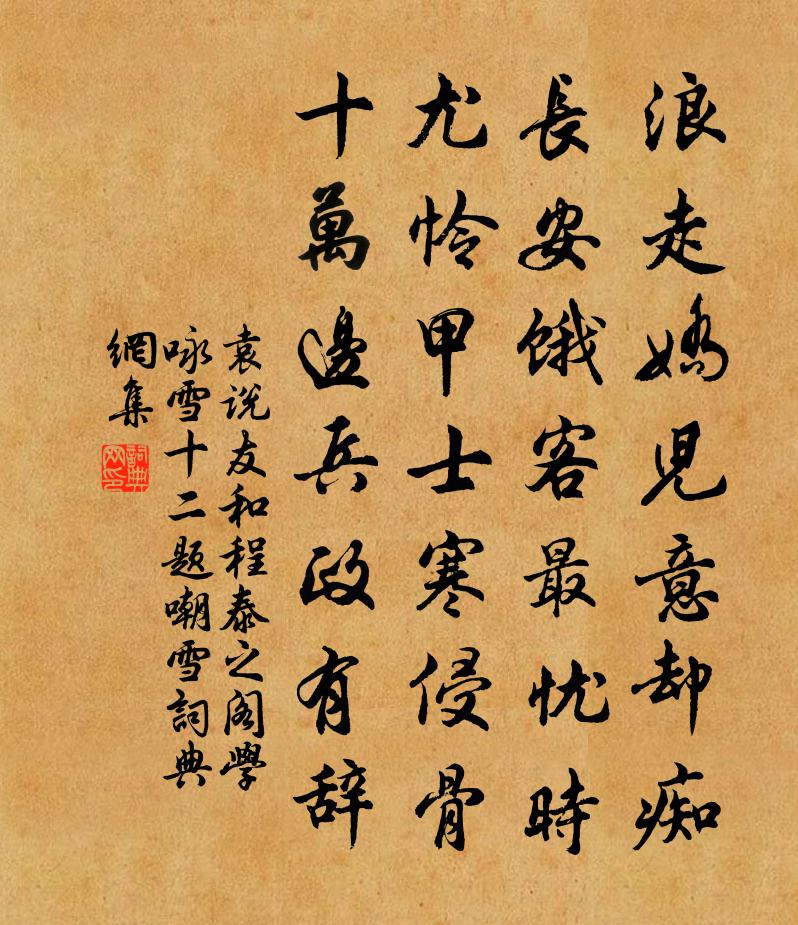 浪走嬌児意却痴
長安餓客最忧時
尤怜甲士寒侵骨
十萬邊兵政有辞
袁说友和程泰之阁學
咏雪十二题嘲雪詞典
網集
詞典網印